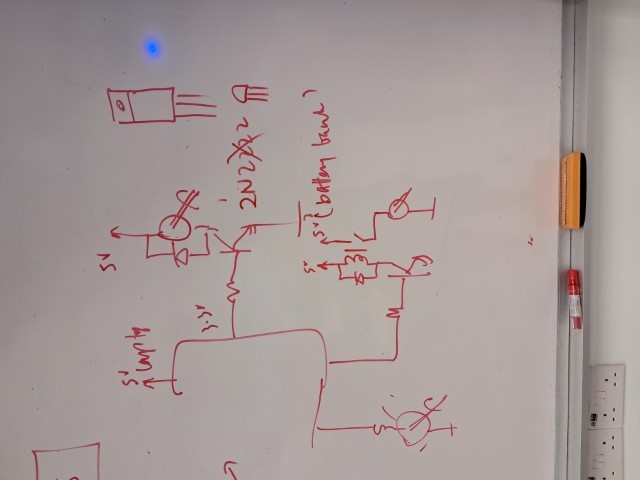 5V
5V
3.3V
2N2222
5V
5V (battery bank)